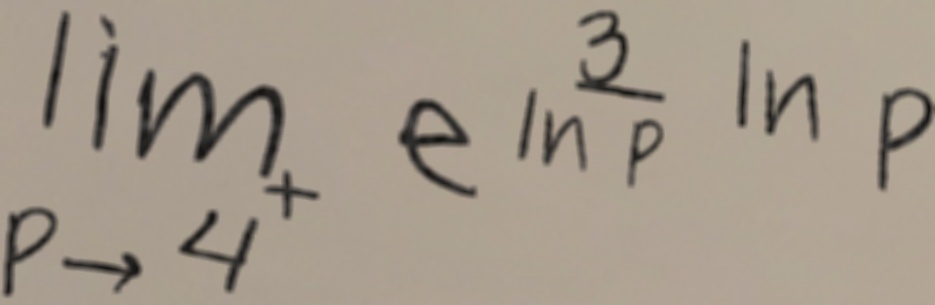 \lim_{p \to 4^+} e^{\frac{3}{\ln p}} \ln p